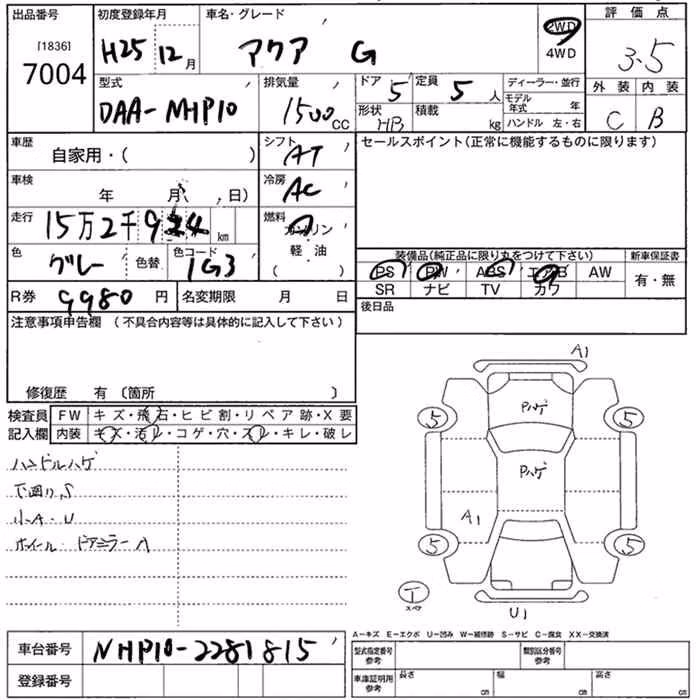 出品番号
[1836]
7004
初度登録年月
H25 12月
車名・グレード
アクア G
2WD
4WD
評価点
3.5
外装 内装
C B
型式
DAA-NHP10
排気量
1500 CC
ドア 5
定員 5 人
形状 HB
積載 kg
ディーラー・並行
モデル年式 年
ハンドル 左・右
車歴
自家用・( )
シフト AT
セールスポイント(正常に機能するものに限ります)
車検
年 月( 、 日)
冷房 AC
走行
15万2千9 4 km
燃料
ガソリン
軽・油
( )
色
グレー
色替
色コード
1G3
装備品(純正品に限り丸をつけて下さい)
PS PW ABS エアB AW
SR ナビ TV カワ
新車保証書
有・無
R券 9980 円
名変期限 月 日
後日品
注意事項申告欄 (不具合内容等は具体的に記入して下さい)
修復歴 有 〔箇所 〕
検査員記入欄
FW キズ・飛石・ヒビ割・リペア跡・X要
内装 キズ・汚レ・コゲ・穴・スレ・キレ・破レ
ハンドルハゲ
下廻りS
小A・U
ホイール・ドアミラーA
A1
Pハゲ
5 5
Pハゲ
A1
5 5
T
スペア
U1
A-キズ E-エクボ U-凹み W-補修跡 S-サビ C-腐食 XX-交換済
車台番号
NHP10-2281815
登録番号
型式指定番号 参考
類別区分番号 参考
車庫証明用 参考
長さ cm
幅 cm
高さ cm